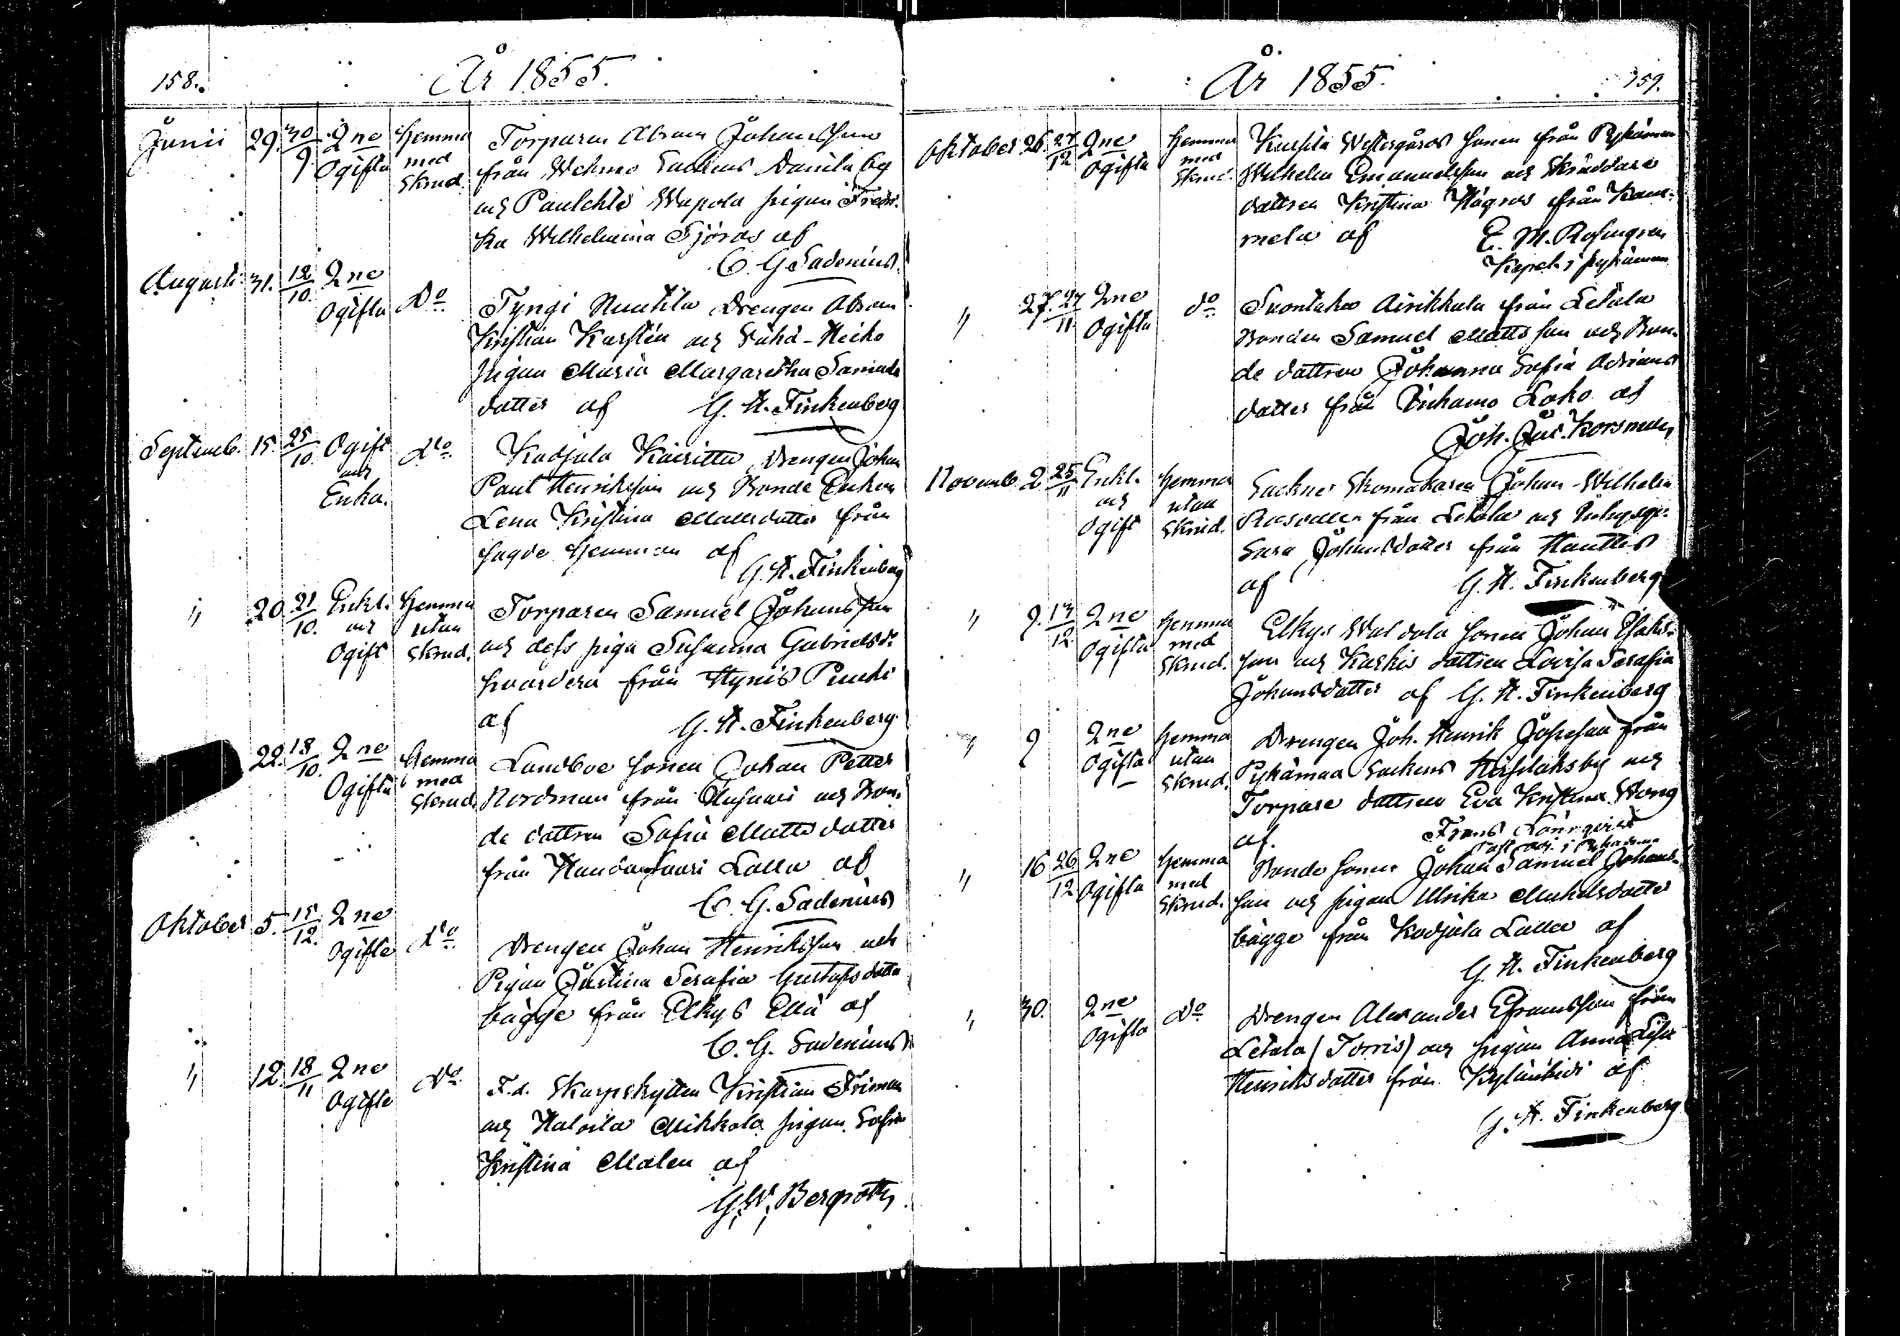 158.
År 1855.
Junii 29. 30/9 2ne Ogifta Hemma med Skrud. Torparen Abram Johansson
från Wehmo Sockens Danila By
och Pauchlis Wapola pigan Fredri-
ka Wilhelmina Sjöros af
C. G. Sadenius.
Augusti 31. 12/10. 2ne Ogifta do Tyngi Nuutila Drengen Abram
Kristian Karstén och Heiko
pigan Maria Margaretha Samuels
dotter af G. A. Finkenberg
Septemb. 15. 25/10. Ogift och Enka. do Kodjala Kairitta Drengen Johan
Paul Henriksson och Bonde Enkan
Lena Kristina Mattsdotter från
sagde Hemman af
G. A. Finkenberg
" 20. 21/10. Enkl. och Ogift Hemma utan Skrud. Torparen Samuel Johansson
och dess piga Susanna Gabrielsdr
hvardera från Hynis
af G. A. Finkenberg
22. 18/10. 2ne Ogifta Hemma med Skrud Landboe sonen Johan Petter
Nordman från och Bon-
de dottren Sofia Mattsdotter
från Lalla af
C. G. Sadenius
Oktober 5. 15/12. 2ne Ogifte do Drengen Johan Henriksson och
Pigan Justina Serafia Gustafsdotter
bägge från Elkys Ellä af
C. G. Sadenius
" 12. 18/11 2ne Ogifte do F.d. Skarpskytten Kristian Friman
och Haloila Mikkola pigan Sofia
Kristina Malen af
G. W. Bergroth
159.
År 1855.
Oktober 26. 27/12 2ne Ogifta Hemma med Skrud. Kuusila Westergårds sonen från Pyhämaa
Wilhelm Emanuelsson och Skräddare
dottren Kristina Hägros från Kam-
mela af E. M. Rosengren
Kapel. i Pyhämaa
" 27. 27/11 2ne Ogifta do Suontaka Airikkala från Letala
Bonden Samuel Mattsson och Bon-
de dottren Johanna Sofia Adrians
dotter från Laho af
Joh. Jac. Korsman
Novemb. 2. 25/11 Enkl. och Ogift Hemma utan Skrud. Sockne Skomakaren Johan Wilhelm
från Letala och
Sara Johansdotter från Hauttis
af G. A. Finkenberg
" 9. 13/12. 2ne Ogifta Hemma med Skrud. Elkys Waldola sonen Johan Isaks-
son och Kaskis dottren Lovisa Serafia
Johansdotter af G. A. Finkenberg
" 9 2ne Ogifta Hemma utan Skrud. Drengen Joh. Henrik Josefsson från
Pyhämaa Sockens och
Torpare dottren Eva Kristina Wong
af. Frans Lönnqvist
Past. adj. i Pyhämaa
" 16 26/12 2ne Ogifta Hemma med Skrud. Bonde sonen Johan Samuel Johans-
son och pigan Ulrika Michelsdotter
bägge från Kodjala Lalla af
G. A. Finkenberg
" 30. 2ne Ogifta do Drengen Alexander Efraimsson från
Letala (Torris) och pigan Anna Lisa
Henriksdotter från af
G. A. Finkenberg